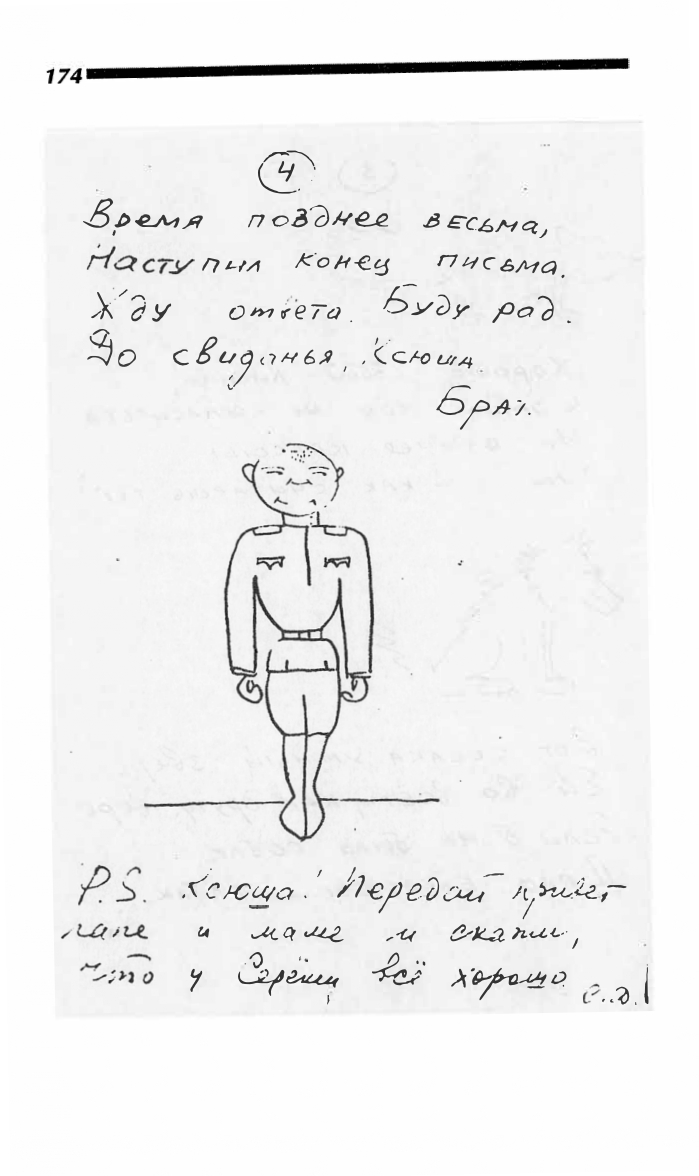 174
4
Время позднее весьма,
Наступил конец письма.
Жду ответа. Буду рад.
До свиданья, Ксюша
Брат.
P.S. Ксюша! Передай привет
папе и маме и скажи,
что у Серёжи всё хорошо.
С.Д.